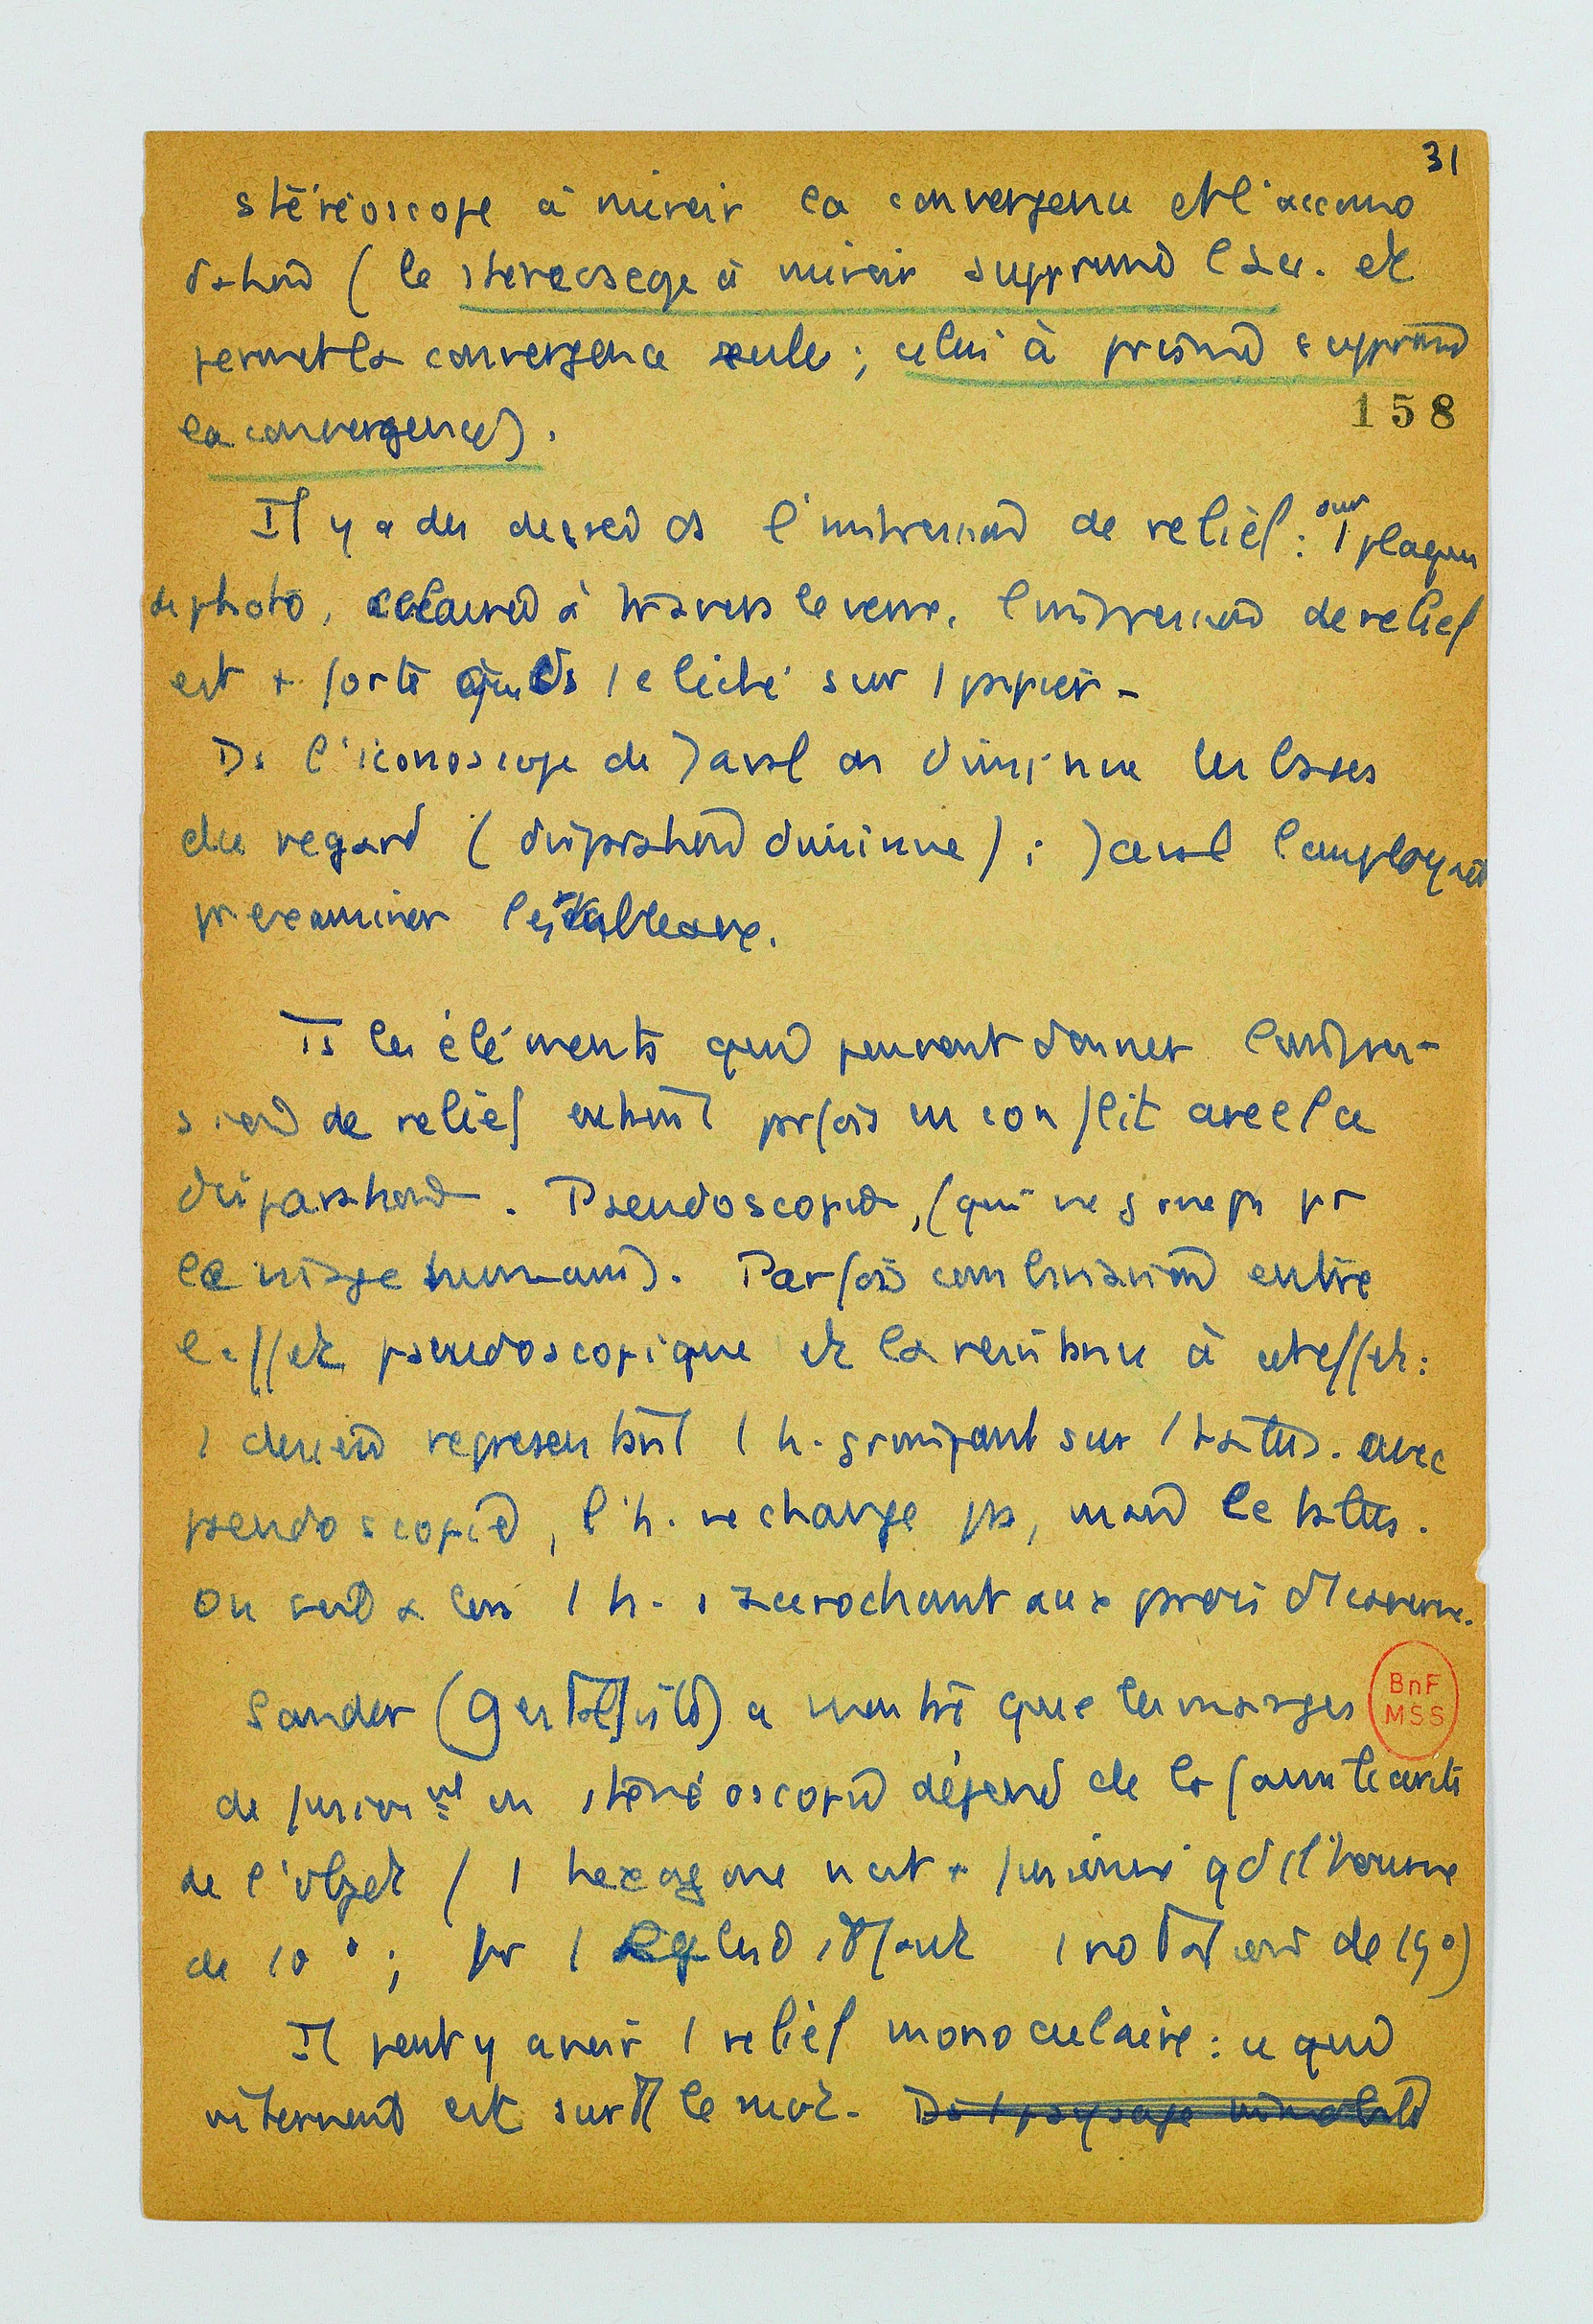 31
stéréoscope à miroir la convergence et l'accomo
dation (le stéréoscope à miroir supprime l'acc. et
permet la convergence seule ; celui à prisme supprime
158
la convergence).
Il y a des degrés ds l'impression de relief : sur 1 plaque
de photo, éclairée à travers le verre, l'impression de relief
est + forte que ds 1 cliché sur 1 papier -
Ds l'iconoscope de Javal on diminue les bases
du regard (disparation diminue) ; Javal l'employait
pr examiner les tableaux.
Ts les éléments qui peuvent donner l'impres-
sion de relief entrent prfois en conflit avec la
disparation. Pseudoscopie, (qui ne joue pas pr
le visage humain). Parfois combinaison entre
l'effet pseudoscopique et la résistance à cet effet :
1 dessin représentant 1 h. grimpant sur 1 talus. avec
pseudoscopie, l'h. ne change pas, mais le talus.
On voit alors 1 h. s'accrochant aux parois d'1 caverne.
Sander ( ) a montré que les marges
de fusionnement en stéréoscopie dépend de la
de l'objet / 1 hexagone n'est + fusionné qd il tourne
de 10° ; pr 1 il faut 1 rotation de 15°)
Il peut y avoir 1 relief monoculaire : ce qui
intervient est surtt le mvt. Ds 1 paysage immobile
BnF
MSS